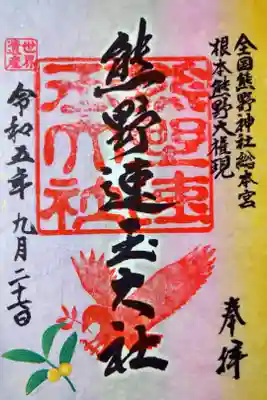 全国熊野神社総本宮
根本熊野大権現
奉拝
熊野速玉大社
熊野速玉大社
世界遺産
令和五年九月二十七日